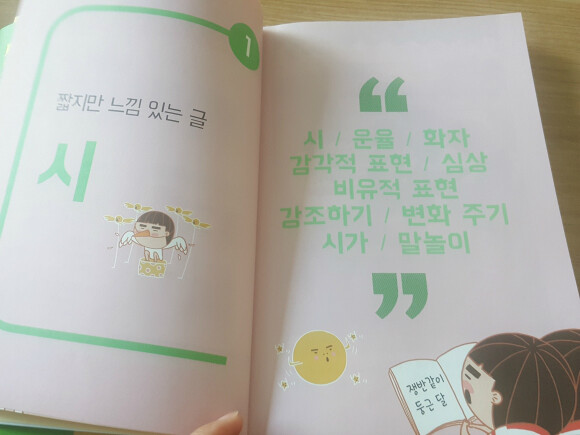 1
짧지만 느낌 있는 글
시
“
시 / 운율 / 화자
감각적 표현 / 심상
비유적 표현
강조하기 / 변화 주기
시가 / 말놀이
”
쟁반같이
둥근 달